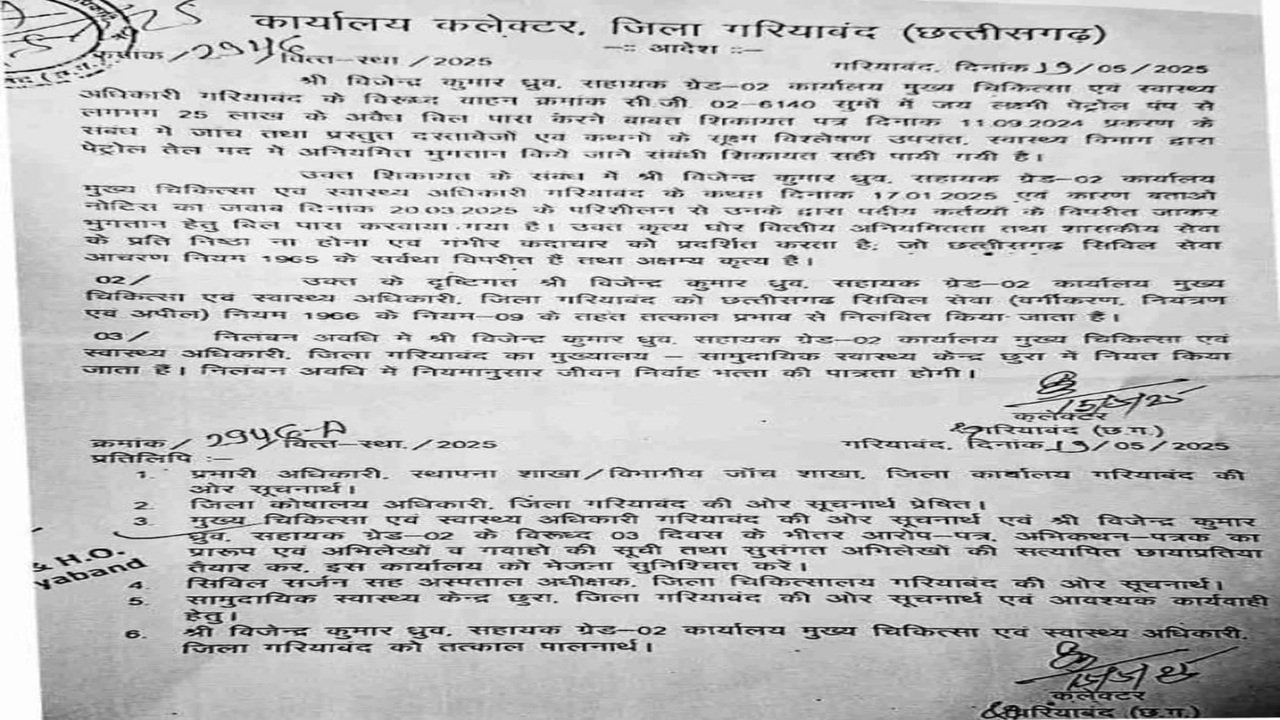 कार्यालय कलेक्टर, जिला गरियाबंद (छत्तीसगढ़)
—:: आदेश ::—
क्रमांक / 2946 वित्त—स्था / 2025 गरियाबंद, दिनांक 19/05/2025
श्री विजेन्द्र कुमार ध्रुव, सहायक ग्रेड—02 कार्यालय मुख्य चिकित्सा एवं स्वास्थ्य
अधिकारी गरियाबंद के विरूध्द वाहन क्रमांक सी.जी. 02-6140 सुमों में जय लक्ष्मी पेट्रोल पंप से
लगभग 25 लाख के अवैध बिल पास करने बाबत शिकायत पत्र दिनांक 11.09.2024 प्रकरण के
संबंध में जांच तथा प्रस्तुत दस्तावेजों एवं कथनो के सूक्ष्म विश्लेषण उपरांत, स्वास्थ्य विभाग द्वारा
पेट्रोल तेल मद मे अनियमित भुगतान किये जाने संबंधी शिकायत सही पायी गयी है।
उक्त शिकायत के संबंध में श्री विजेन्द्र कुमार ध्रुव, सहायक ग्रेड—02 कार्यालय
मुख्य चिकित्सा एवं स्वास्थ्य अधिकारी गरियाबंद के कथन दिनांक 17.01.2025 एवं कारण बताओ
नोटिस का जवाब दिनांक 20.03.2025 के परिशीलन से उनके द्वारा पदीय कर्तव्यों के विपरीत जाकर
भुगतान हेतु बिल पास करवाया गया है। उक्त कृत्य घोर वित्तीय अनियमितता तथा शासकीय सेवा
के प्रति निष्ठा ना होना एवं गंभीर कदाचार को प्रदर्शित करता है; जो छत्तीसगढ़ सिविल सेवा
आचरण नियम 1965 के सर्वथा विपरीत हैं तथा अक्षम्य कृत्य है।
02/ उक्त के दृष्टिगत श्री विजेन्द्र कुमार ध्रुव, सहायक ग्रेड—02 कार्यालय मुख्य
चिकित्सा एवं स्वास्थ्य अधिकारी, जिला गरियाबंद को छत्तीसगढ़ सिविल सेवा (वर्गीकरण, नियंत्रण
एवं अपील) नियम 1966 के नियम—09 के तहत तत्काल प्रभाव से निलंबित किया जाता है।
03/ निलंबन अवधि मे श्री विजेन्द्र कुमार ध्रुव, सहायक ग्रेड—02 कार्यालय मुख्य चिकित्सा एवं
स्वास्थ्य अधिकारी, जिला गरियाबंद का मुख्यालय — सामुदायिक स्वास्थ्य केन्द्र छुरा में नियत किया
जाता हैं। निलंबन अवधि में नियमानुसार जीवन निर्वाह भत्ता की पात्रता होगी।
15/5/25
कलेक्टर
गरियाबंद (छ.ग.)
क्रमांक / 2946-A वित्त—स्था. / 2025 गरियाबंद, दिनांक 19/05/2025
प्रतिलिपि :—
1. प्रभारी अधिकारी, स्थापना शाखा/विभागीय जॉच शाखा, जिला कार्यालय गरियाबंद की
ओर सूचनार्थ।
2. जिला कोषालय अधिकारी, जिला गरियाबंद की ओर सूचनार्थ प्रेषित।
3. मुख्य चिकित्सा एवं स्वास्थ्य अधिकारी गरियाबंद की ओर सूचनार्थ एवं श्री विजेन्द्र कुमार
ध्रुव, सहायक ग्रेड—02 के विरूध्द 03 दिवस के भीतर आरोप—पत्र, अभिकथन—पत्रक का
प्रारूप एवं अभिलेखों व गवाहो की सूची तथा सुसंगत अभिलेखों की सत्यापित छायाप्रतिया
तैयार कर, इस कार्यालय को भेजना सुनिश्चित करें।
& H.O.
yaband
4. सिविल सर्जन सह अस्पताल अधीक्षक, जिला चिकित्सालय गरियाबंद की ओर सूचनार्थ।
5. सामुदायिक स्वास्थ्य केन्द्र छुरा, जिला गरियाबंद की ओर सूचनार्थ एवं आवश्यक कार्यवाही
हेतु।
6. श्री विजेन्द्र कुमार ध्रुव, सहायक ग्रेड—02 कार्यालय मुख्य चिकित्सा एवं स्वास्थ्य अधिकारी,
जिला गरियाबंद को तत्काल पालनार्थ।
15/5/25
कलेक्टर
गरियाबंद (छ.ग.)